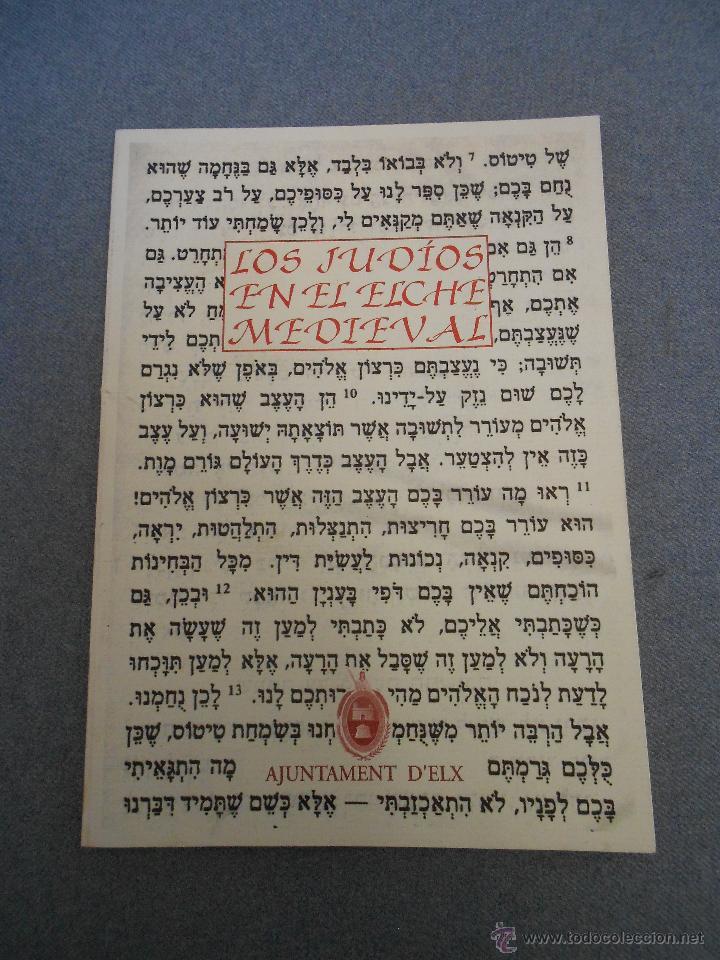 של טיטוס. ⁷ וְלֹא בְּבוֹאוֹ בִּלְבַד, אֶלָּא גַּם בַּנֶּחָמָה שֶׁהוּא
נֻחַם בָּכֶם; שֶׁכֵּן סִפֵּר לָנוּ עַל כִּסּוּפֵיכֶם, עַל רֹב צַעַרְכֶם,
עַל הַקִּנְאָה שֶׁאַתֶּם מְקַנְּאִים לִי, וְלָכֵן שָׂמַחְתִּי עוֹד יוֹתֵר.
⁸ הֵן גַּם אִם תְחָרֵט. גַּם
LOS JUDÍOS
אִם הִתְחָרַטְ א הָעֲצִיבָה
EN EL ELCHE
אֶתְכֶם, אַף מַח לֹא עַל
MEDIEVAL
שֶׁנֶּעֱצַבְתֶּם, תְכֶם לִידֵי
תְּשׁוּבָה; כִּי נֶעֱצַבְתֶּם כִּרְצוֹן אֱלֹהִים, בְּאֹפֶן שֶׁלֹּא נִגְרַם
לָכֶם שׁוּם נֵזֶק עַל-יָדֵינוּ. ¹⁰ הֵן הָעֶצֶב שֶׁהוּא כִּרְצוֹן
אֱלֹהִים מְעוֹרֵר לִתְשׁוּבָה אֲשֶׁר תּוֹצָאָתָהּ יְשׁוּעָה, וְעַל עֶצֶב
כָּזֶה אֵין לְהִצְטַעֵר. אֲבָל הָעֶצֶב כְּדֶרֶךְ הָעוֹלָם גּוֹרֵם מָוֶת.
¹¹ רְאוּ מָה עוֹרֵר בָּכֶם הָעֶצֶב הַזֶּה אֲשֶׁר כִּרְצוֹן אֱלֹהִים!
הוּא עוֹרֵר בָּכֶם חָרִיצוּת, הִתְנַצְּלוּת, הִתְלַהֲטוּת, יִרְאָה,
כִּסּוּפִים, קִנְאָה, נְכוֹנוּת לַעֲשִׂיַּת דִּין. מִכָּל הַבְּחִינוֹת
הוֹכַחְתֶּם שֶׁאֵין בָּכֶם דֹּפִי בָּעִנְיָן הַהוּא. ¹² וּבְכֵן, גַּם
כְּשֶׁכָּתַבְתִּי אֲלֵיכֶם, לֹא כָּתַבְתִּי לְמַעַן זֶה שֶׁעָשָׂה אֶת
הָרָעָה וְלֹא לְמַעַן זֶה שֶׁסָּבַל אֶת הָרָעָה, אֶלָּא לְמַעַן תִּוָּכְחוּ
לָדַעַת לְנֹכַח הָאֱלֹהִים מַהִי רוּתְכֶם לָנוּ. ¹³ לָכֵן נֻחַמְנוּ.
אֲבָל הַרְבֵּה יוֹתֵר מִשֶּׁנֻּחַמְ חְנוּ בְּשִׂמְחַת טִיטוֹס, שֶׁכֵּן
כֻּלְּכֶם גְּרַמְתֶּם מָה הִתְגָּאֵיתִי
AJUNTAMENT D'ELX
בָּכֶם לְפָנָיו, לֹא הִתְאַכְזַבְתִּי — אֶלָּא כְּשֵׁם שֶׁתָּמִיד דִּבַּרְנוּ
© www.todocoleccion.net